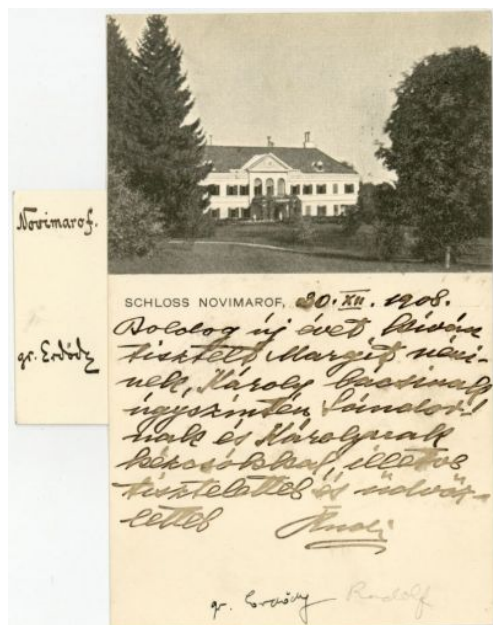 Novimarof.
gr. Erdődy
SCHLOSS NOVIMAROF, 30. XII. 1908.
Boldog új évet kíván
tisztelt Margit néni-
nek, Károly bacsinak
úgyszintén Sándor-
nak és Károlynak
kézcsókkal, illetve
tisztelettel és üdvöz-
lettel Rudi
gr. Erdődy Rudolf